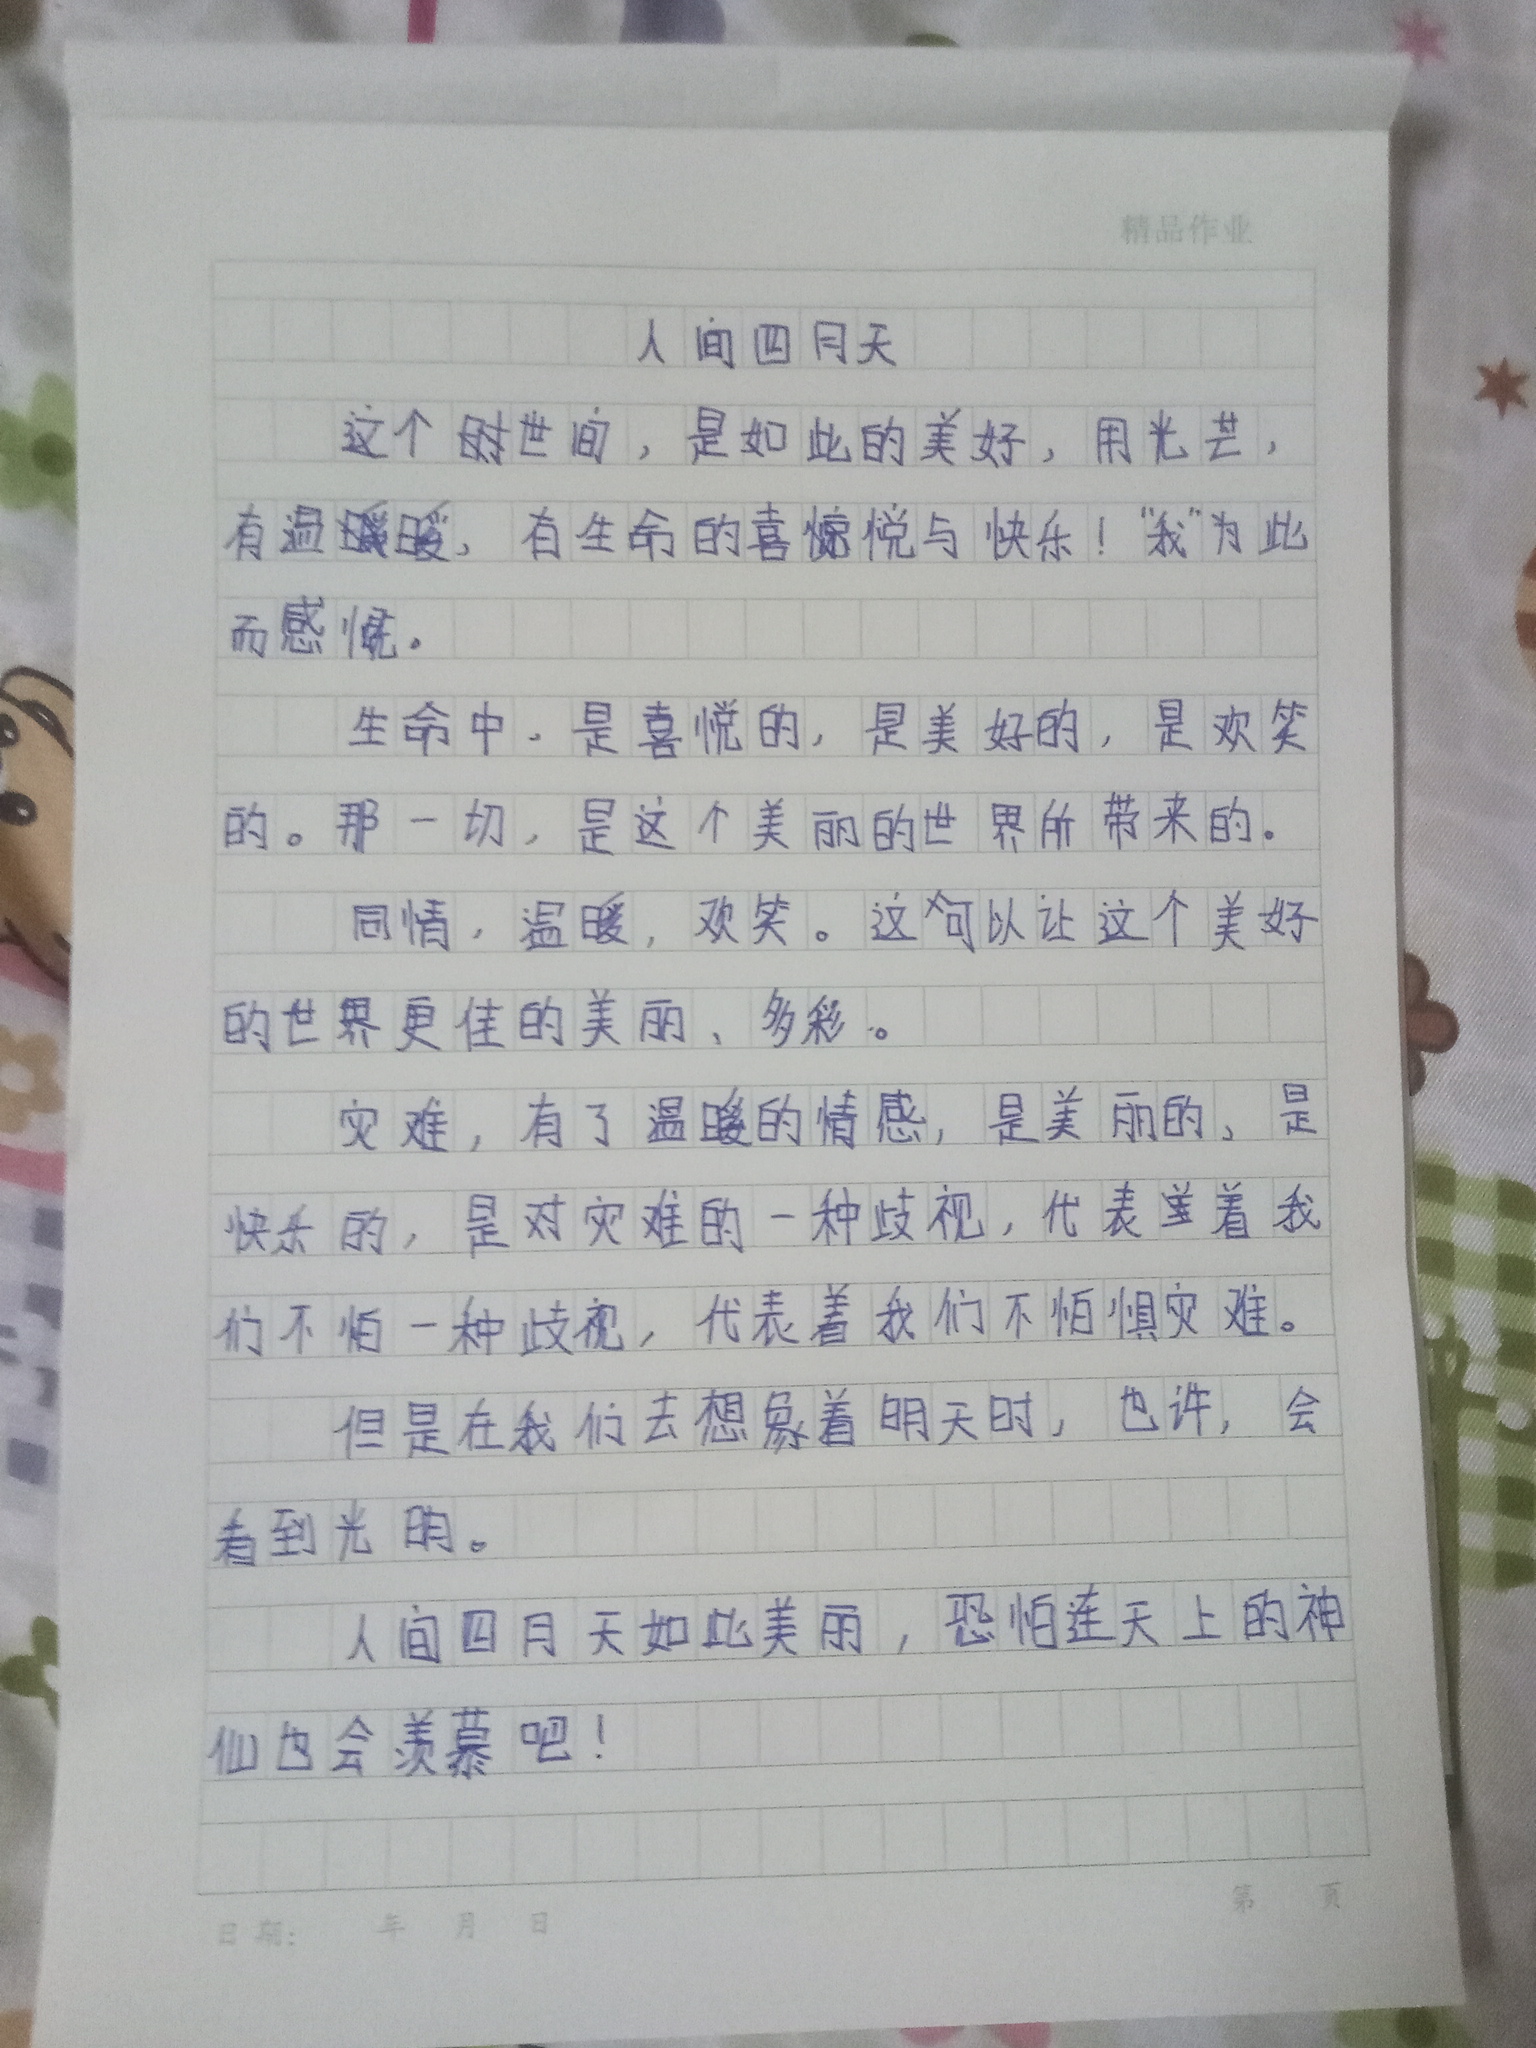 精品作业
人间四月天
这个世间，是如此的美好，用光芒，
有温暖，有生命的喜悦与快乐！“我”为此
而感慨。
生命中，是喜悦的，是美好的，是欢笑
的。那一切，是这个美丽的世界所带来的。
同情，温暖，欢笑。这可以让这个美好
的世界更佳的美丽、多彩。
灾难，有了温暖的情感，是美丽的，是
快乐的，是对灾难的一种歧视，代表着我
们不怕一种歧视，代表着我们不怕惧灾难。
但是在我们去想象着明天时，也许，会
看到光明。
人间四月天如此美丽，恐怕连天上的神
仙也会羡慕吧！
日期： 年 月 日
第 页